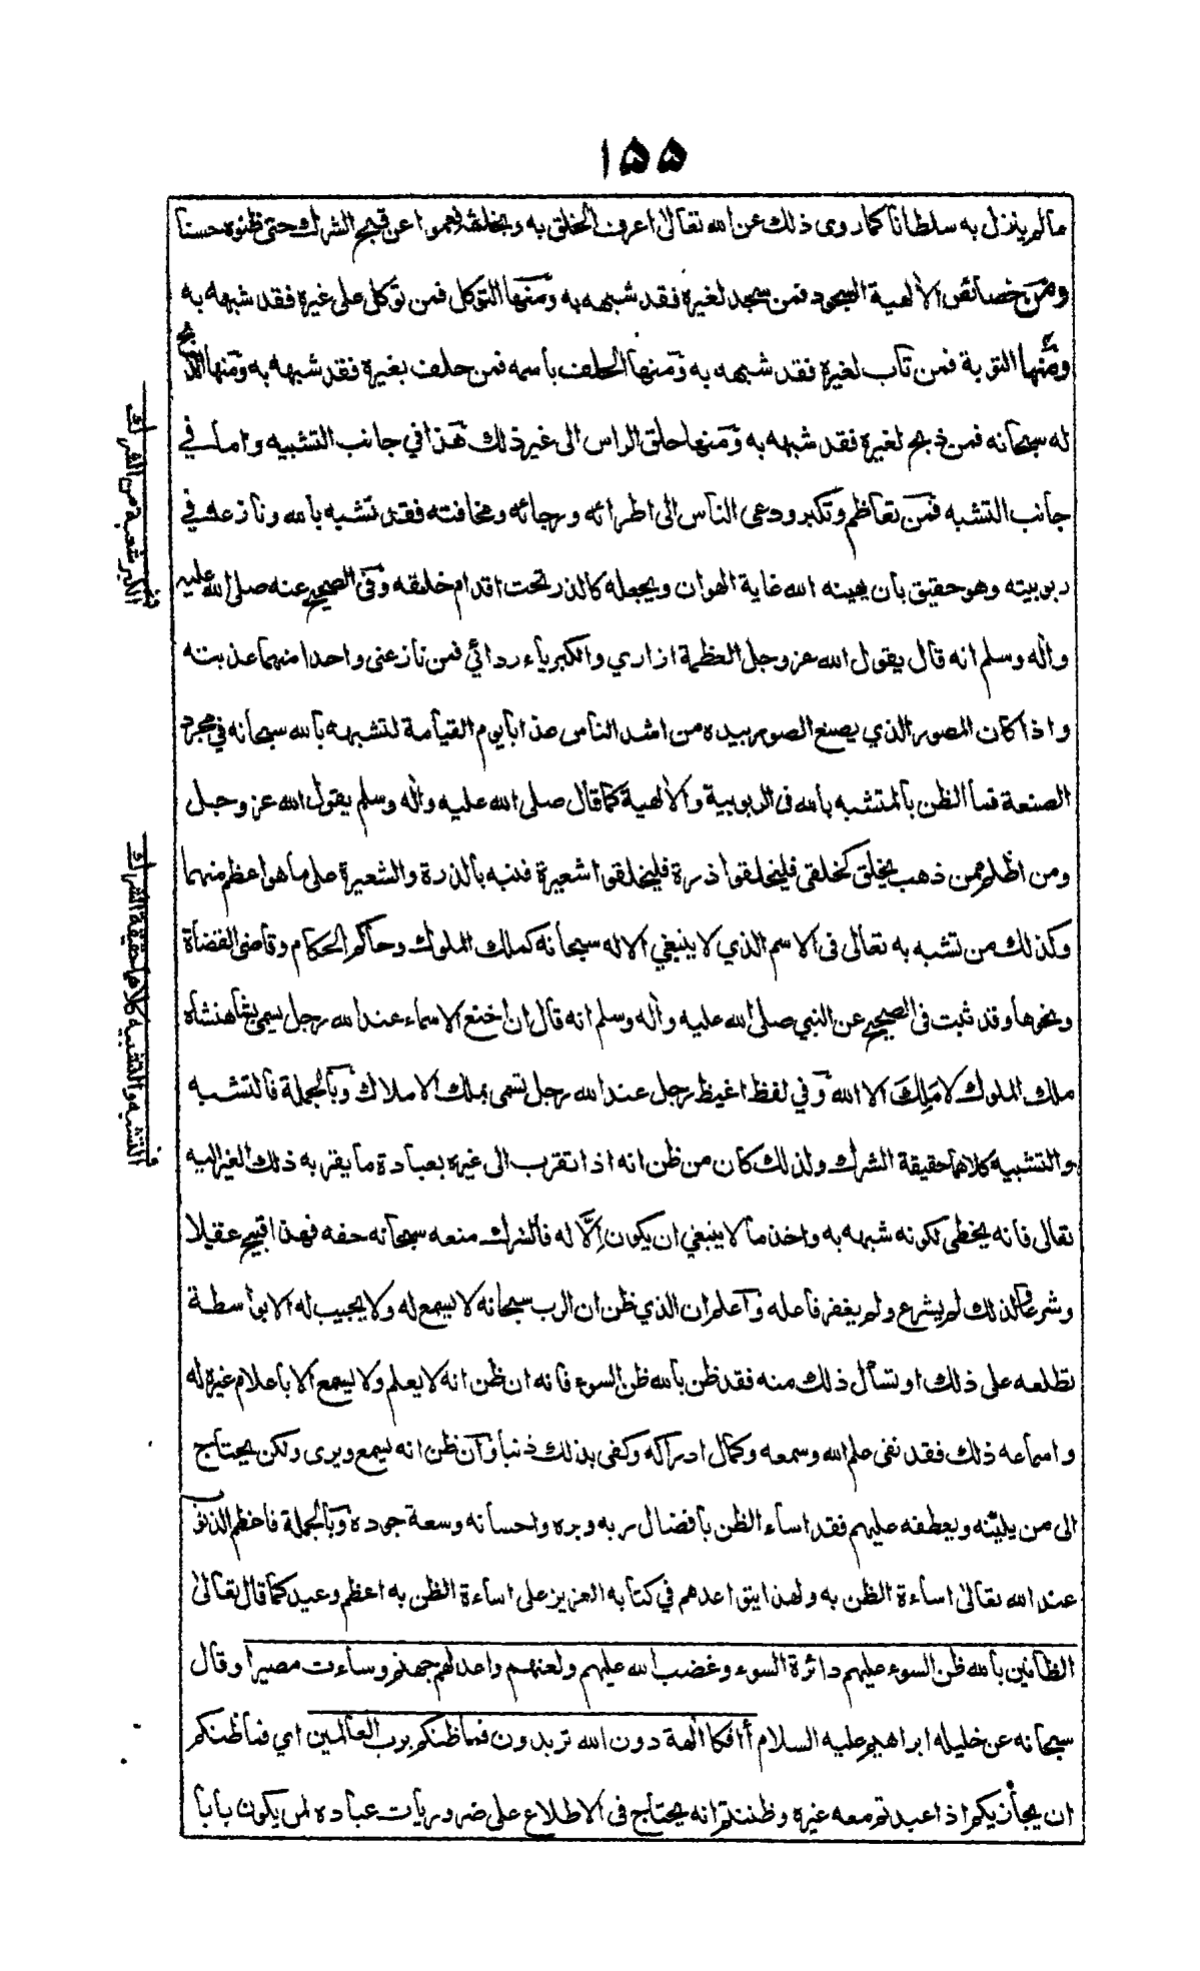 ١٥٥
مالم ينزل به سلطانا كما روى ذلك عن الله تعالى اعرف الخلق به وبخلقه فعموا عن قبح الشرك حتى ظنوه حسنا
ومن خصائص الالهية السجود فمن سجد لغيره فقد شبهه به ومنها التوكل فمن توكل على غيره فقد شبهه به
ومنها التوبة فمن تاب لغيره فقد شبهه به ومنها الحلف باسمه فمن حلف بغيره فقد شبهه به ومنها الذبح
له سبحانه فمن ذبح لغيره فقد شبهه به ومنها حلق الراس الى غير ذلك هذا في جانب التشبيه واما في
جانب التشبه فمن تعاظم وتكبر ودعى الناس الى اطرائه ورجائه ومخافته فقد تشبه بالله ونازعه في
ربوبيته وهو حقيق بان يهينه الله غاية الهوان ويجعله كالذر تحت اقدام خلقه وفى الصحيح عنه صلى الله عليه
واله وسلم انه قال يقول الله عز وجل العظمة ازاري والكبرياء ردائي فمن نازعنى واحدا منهما عذبته
واذا كان المصور الذي يصنع الصور بيده من اشد الناس عذابا يوم القيامة لتشبهه بالله سبحانه في مجرد
الصنعة فما الظن بالمتشبه بالله فى الربوبية والالهية كما قال صلى الله عليه واله وسلم يقول الله عز وجل
ومن اظلم ممن ذهب يخلق كخلقى فليخلقوا ذرة فليخلقوا شعيرة فنبه بالذرة والشعيرة على ما هو اعظم منهما
وكذلك من تشبه به تعالى فى الاسم الذي لا ينبغي الا له سبحانه كملك الملوك وحاكم الحكام وقاضى القضاة
ونحوها وقد ثبت فى الصحيح عن النبي صلى الله عليه واله وسلم انه قال ان اخنع الاسماء عند الله رجل يسمى بشاهنشاه
ملك الملوك لا مَلِكَ الا الله وفي لفظ اغيظ رجل عند الله رجل تسمى بملك الاملاك وبالجملة فالتشبه
والتشبيه كلاهما حقيقة الشرك ولذلك كان من ظن انه اذا تقرب الى غيره بعبادة ما يقربه ذلك الغير اليه
تعالى فانه يخطى لكونه شبهه به واخذ ما لا ينبغي ان يكون اِلَّا له فالشرك منعه سبحانه حقه فهذا قبيح عقلا
وشرعا فلذلك لم يشرع ولم يغفر فاعله واعلم ان الذي ظن ان الرب سبحانه لا يسمع له ولا يجيب له الا بواسطة
تطلعه على ذلك او تسأل ذلك منه فقد ظن بالله ظن السوء فانه ان ظن انه لا يعلم ولا يسمع الا باعلام غيره له
واسماعه ذلك فقد نفى علم الله وسمعه وكمال ادراكه وكفى بذلك ذنبا وان ظن انه يسمع ويرى ولكن يحتاج
الى من يلينه ويعطفه عليهم فقد اساء الظن بافضال ربه وبره واحسانه وسعة جوده وبالجملة فاعظم الذنوب
عند الله تعالى اساءة الظن به ولهذا يتواعدهم في كتابه العزيز على اساءة الظن به اعظم وعيد كما قال تعالى
الظانين بالله ظن السوء عليهم دائرة السوء وغضب الله عليهم ولعنهم واعد لهم جهنم وساءت مصيرا وقال
سبحانه عن خليله ابراهيم عليه السلام أافكا الهة دون الله تريدون فما ظنكم برب العالمين اي فما ظنكم
ان يجازيكم اذا عبدتم معه غيره وظننتم انه يحتاج فى الاطلاع على ضروريات عباده لمن يكون بابا
التكبر شعبة من الشرك
التشبه والتشبيه كلاهما حقيقة الشرك